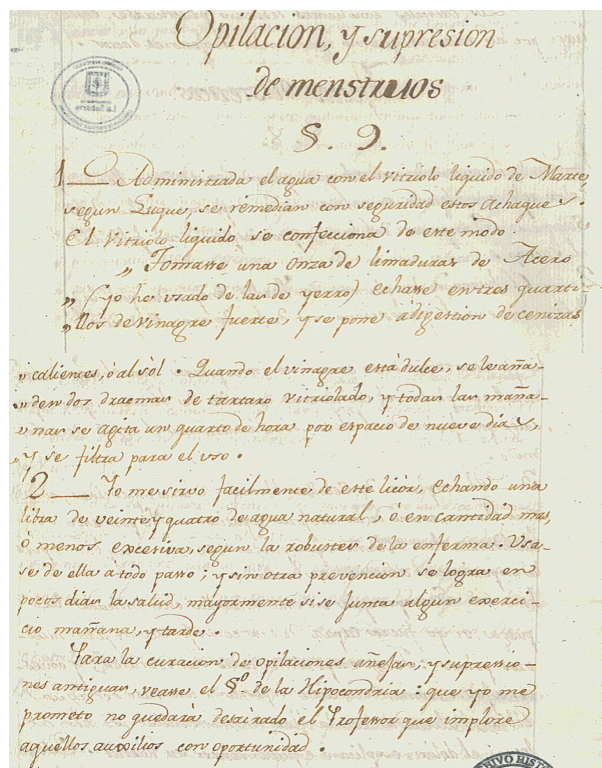 Opilacion, y supresion
de menstruos
§. 9.
1 — Administrada el agua con el vitriolo liquido de Marte,
segun Luque, se remedian con seguridad estos achaques.
El Vitriolo liquido se confecciona de este modo.
„ Tomasse una onza de limaduras de Acero
„ (yo he usado de las de yerro) echasse en tres quarti-
„ llos de vinagre fuerte, y se pone à digestion de cenizas
„ calientes, ó al sòl. Quando el vinagre està dulce, se le aña-
„ den dos dracmas de tartaro vitriolado, y todas las maña-
„ nas se agita un quarto de hora por espacio de nueve dias,
„ y se filtra para el uso.
2 — Yo me sirvo facilmente de este licòr, echando una
libra de veinte y quatro de agua natural, ó en cantidad mas,
ò menos excesiva, segun la robustes de la enferma. Usa-
se de ella à todo pasto; y sin otra prevencion se logra en
pocos dias la salud, mayormente si se junta algun exerci-
cio mañana, y tarde.
Para la curacion de opilaciones añejas, y supressio-
nes antiguas, veasse el §.º de la Hipocondria: que yo me
prometo no quedarà desairado el Professor que implore
aquellos auxilios con oportunidad.